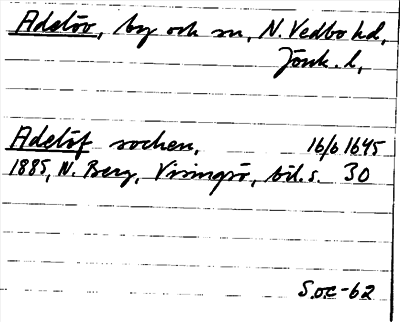 Adelöv, by och sn, N. Vedbo hd,
Jönk. l,
Adelöf sochen, 16/6 1645
1885, N. Berg, Visingsö, bil. s. 30
S.O.C-62